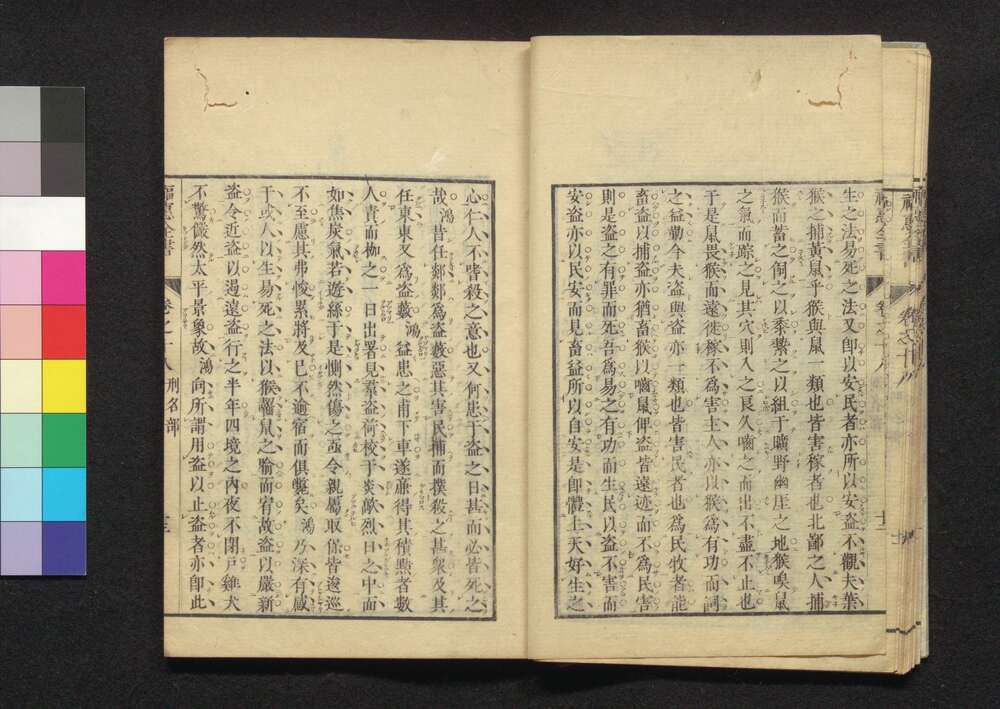 福惠全書
卷之十八
生之法易死之法又卽以安民者亦所以安盜不觀夫葉
猴之捕黃鼠乎猴與鼠一類也皆害稼者也北鄙之人捕
猴而蓄之飼之以黍縶之以組于曠野幽崖之地猴嗅鼠
之氣而踪之見其穴則入之良久嚙之而出不盡不止也
于是鼠畏猴而遠徙稼不爲害主人亦以猴爲有功而飼
之益勤今夫盜與盜亦一類也皆害民者也爲民牧者能
畜盜以捕盜亦猶畜猴以嚙鼠俾盜皆遠迹而不爲民害
則是盜之有罪而死吾爲易之有功而生民以盜不害而
安盜亦以民安而見畜益所以自安是卽體上天好生之
心仁人不嗜殺之意也又何患于盜之日甚而必皆死之
哉鴻昔任郯郯爲盜藪惡其害民捕而撲殺之甚衆及其
任東東又爲盜藪鴻益患之甫下車遂廉得其積黠者數
人責而枷之一日出署見羣盜荷校于炎敵烈日之中面
如焦炭氣若遊絲于是惻然傷之亟令親屬取保皆逡巡
不至慮其弗悛累將及已不逾宿而俱斃矣鴻乃深有感
于或人以生易死之法以猴嚙鼠之喻而宥故盜以嚴新
盜令近盜以遏遠盜行之半年四境之內夜不閉戶雞犬
不驚儼然太平景象故鴻向所謂用盜以止盜者亦卽此
福惠全書
卷之十八
刑名部
十三